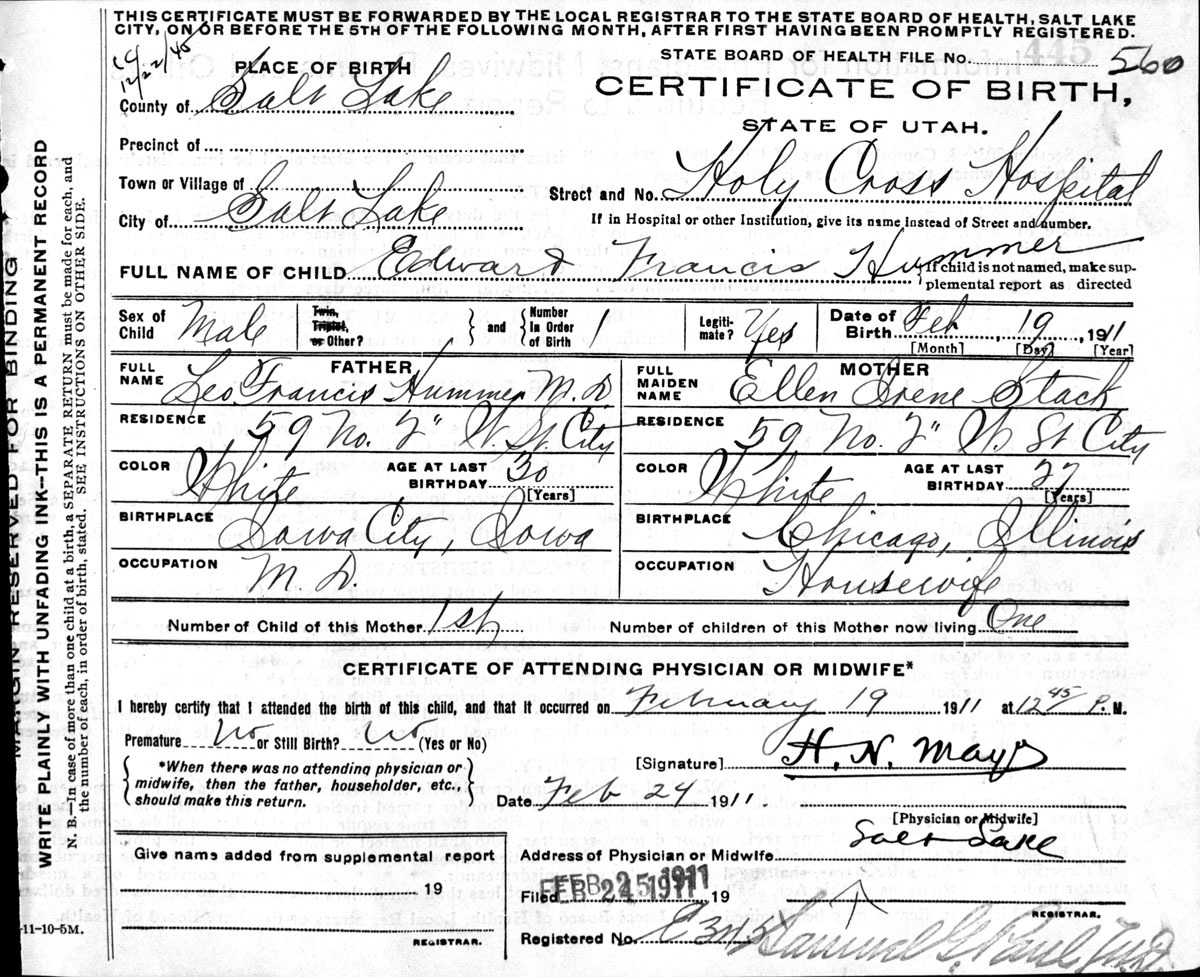 THIS CERTIFICATE MUST BE FORWARDED BY THE LOCAL REGISTRAR TO THE STATE BOARD OF HEALTH, SALT LAKE
CITY, ON OR BEFORE THE 5TH OF THE FOLLOWING MONTH, AFTER FIRST HAVING BEEN PROMPTLY REGISTERED.
12/22/45
STATE BOARD OF HEALTH FILE No. 445 560
PLACE OF BIRTH
CERTIFICATE OF BIRTH,
County of Salt Lake
STATE OF UTAH.
Precinct of
Town or Village of
Street and No. Holy Cross Hospital
City of Salt Lake
If in Hospital or other Institution, give its name instead of Street and number.
FULL NAME OF CHILD Edward Francis Hummer
If child is not named, make sup-
plemental report as directed
Sex of Child Male
Twin, Triplet, or Other?
and
Number in Order of Birth 1
Legiti-mate? Yes
Date of Birth Feb 19, 1911
[Month] [Day] [Year]
FATHER
FULL NAME Leo Francis Hummer M. D
RESIDENCE 59 No. 2" W. St City
COLOR White
AGE AT LAST BIRTHDAY 30
[Years]
BIRTHPLACE Iowa City, Iowa
OCCUPATION M D.
MOTHER
FULL MAIDEN NAME Ellen Irene Stack
RESIDENCE 59 No. 2" W. St City
COLOR White
AGE AT LAST BIRTHDAY 27
[Years]
BIRTHPLACE Chicago, Illinois
OCCUPATION Housewife
Number of Child of this Mother 1st
Number of children of this Mother now living One
CERTIFICATE OF ATTENDING PHYSICIAN OR MIDWIFE*
I hereby certify that I attended the birth of this child, and that it occurred on February 19 1911 at 12 45 P. M.
Premature No or Still Birth? No (Yes or No)
*When there was no attending physician or
midwife, then the father, householder, etc.,
should make this return.
[Signature] H. N. Mayo
Date Feb 24 1911
[Physician or Midwife]
Give name added from supplemental report
19
REGISTRAR.
Address of Physician or Midwife Salt Lake
Filed FEB 25 1911 19
REGISTRAR.
Registered No. C343
Samuel G. Paul
WRITE PLAINLY WITH UNFADING INK--THIS IS A PERMANENT RECORD
MARGIN RESERVED FOR BINDING
N. B.--In case of more than one child at a birth, a SEPARATE RETURN must be made for each, and
the number of each, in order of birth, stated. SEE INSTRUCTIONS ON OTHER SIDE.
-11-10-5M.